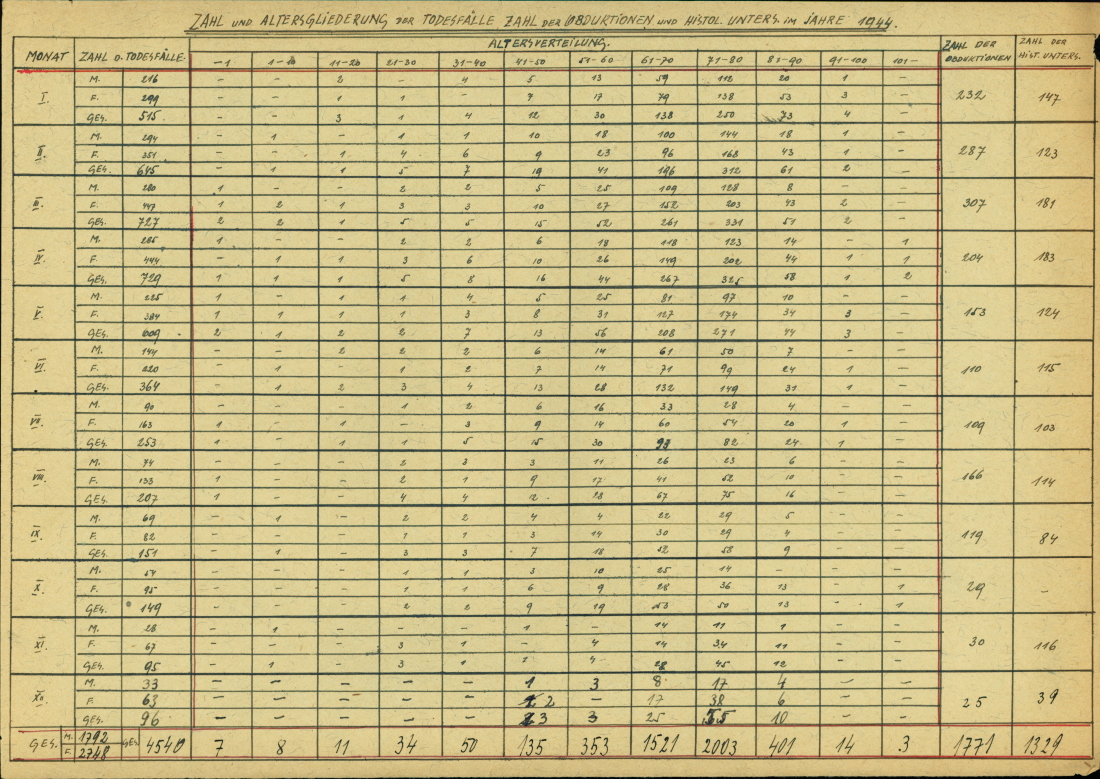 ZAHL UND ALTERSGLIEDERUNG DER TODESFÄLLE ZAHL DER OBDUKTIONEN UND HISTOL. UNTERS. IM JAHRE 1944.
MONAT ZAHL D. TODESFÄLLE. ALTERSVERTEILUNG. ZAHL DER OBDUKTIONEN ZAHL DER HIST. UNTERS.
–1 1–10 11–20 21–30 31–40 41–50 51–60 61–70 71–80 81–90 91–100 101–
M. 216 – – 2 – 4 5 13 59 112 20 1 –
I. F. 299 – – 1 1 – 7 17 79 138 53 3 – 232 147
GES. 515 – – 3 1 4 12 30 138 250 73 4 –
M. 294 – 1 – 1 1 10 18 100 144 18 1 –
II. F. 351 – – 1 4 6 9 23 96 168 43 1 – 287 123
GES. 645 – 1 1 5 7 19 41 196 312 61 2 –
M. 280 1 – – 2 2 5 25 109 128 8 – –
III. F. 447 1 2 1 3 3 10 27 152 203 43 2 – 307 181
GES. 727 2 2 1 5 5 15 52 261 331 51 2 –
M. 285 1 – – 2 2 6 18 118 123 14 – 1
IV. F. 444 – 1 1 3 6 10 26 149 202 44 1 1 204 183
GES. 729 1 1 1 5 8 16 44 267 325 58 1 2
M. 225 1 – 1 1 4 5 25 81 97 10 – –
V. F. 384 1 1 1 1 3 8 31 127 174 34 3 – 153 124
GES. 609 2 1 2 2 7 13 56 208 271 44 3 –
M. 144 – – 2 2 2 6 14 61 50 7 – –
VI. F. 220 – 1 – 1 2 7 14 71 99 24 1 – 110 115
GES. 364 – 1 2 3 4 13 28 132 149 31 1 –
M. 90 – – – 1 2 6 16 33 28 4 – –
VII. F. 163 1 – 1 – 3 9 14 60 54 20 1 – 109 103
GES. 253 1 – 1 1 5 15 30 93 82 24 1 –
M. 74 – – – 2 3 3 11 26 23 6 – –
VIII. F. 133 1 – – 2 1 9 17 41 52 10 – – 166 114
GES. 207 1 – – 4 4 12 28 67 75 16 – –
M. 69 – 1 – 2 2 4 4 22 29 5 – –
IX. F. 82 – – – 1 1 3 14 30 29 4 – – 119 84
GES. 151 – 1 – 3 3 7 18 52 58 9 – –
M. 54 – – – 1 1 3 10 25 14 – – –
X. F. 95 – – – 1 1 6 9 28 36 13 – 1 29 –
GES. 149 – – – 2 2 9 19 53 50 13 – 1
M. 28 – 1 – – – 1 – 14 11 1 – –
XI. F. 67 – – – 3 1 – 4 14 34 11 – – 30 116
GES. 95 – 1 – 3 1 1 4 28 45 12 – –
M. 33 – – – – – 1 3 8 17 4 – –
XII. F. 63 – – – – – 2 – 17 38 6 – – 25 39
GES. 96 – – – – – 3 3 25 55 10 – –
GES. M. 1792 F. 2748 GES. 4540 7 8 11 34 50 135 353 1521 2003 401 14 3 1771 1329